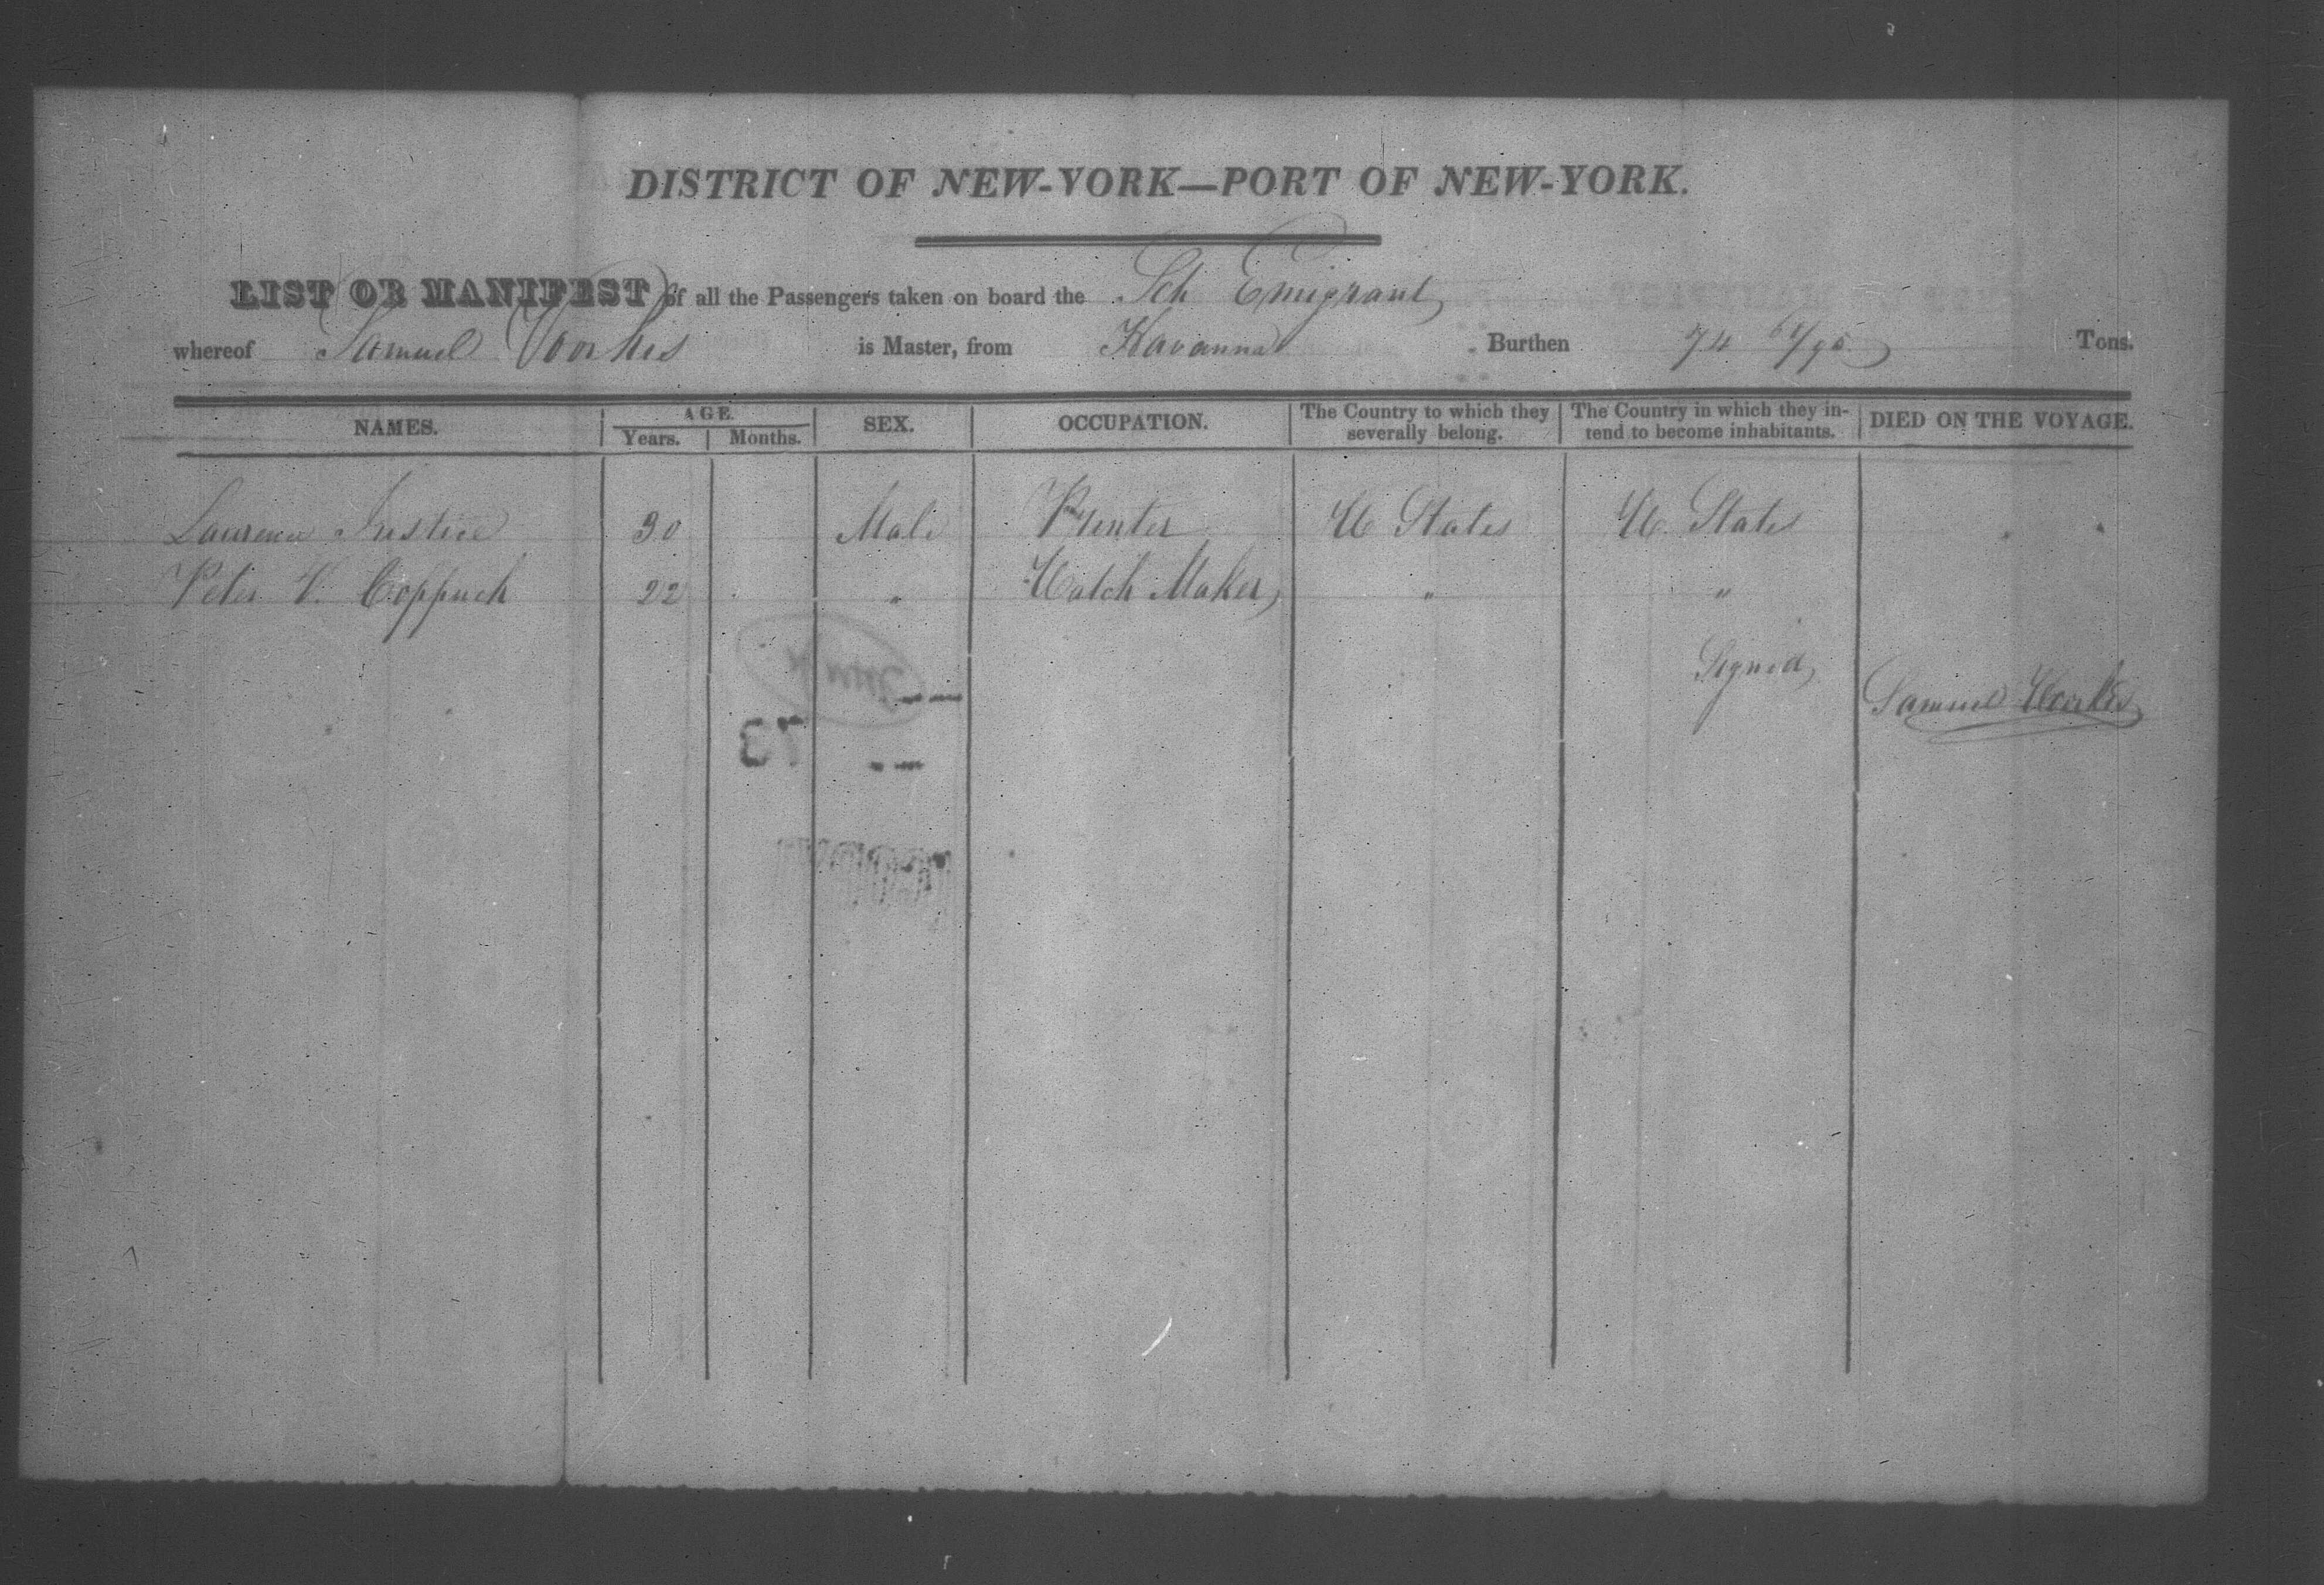 DISTRICT OF NEW-YORK—PORT OF NEW-YORK.
LIST OR MANIFEST of all the Passengers taken on board the Sch Emigrant
whereof Samuel Voorhis is Master, from Havanna Burthen 74 Tons.
NAMES. AGE. Years. Months. SEX. OCCUPATION. The Country to which they severally belong. The Country in which they intend to become inhabitants. DIED ON THE VOYAGE.
Laurence Justice 30 Male Printer U States U. States " "
Peter V. Coppuck 22 " Watch Maker " "
Signed,
Samuel Voorhis